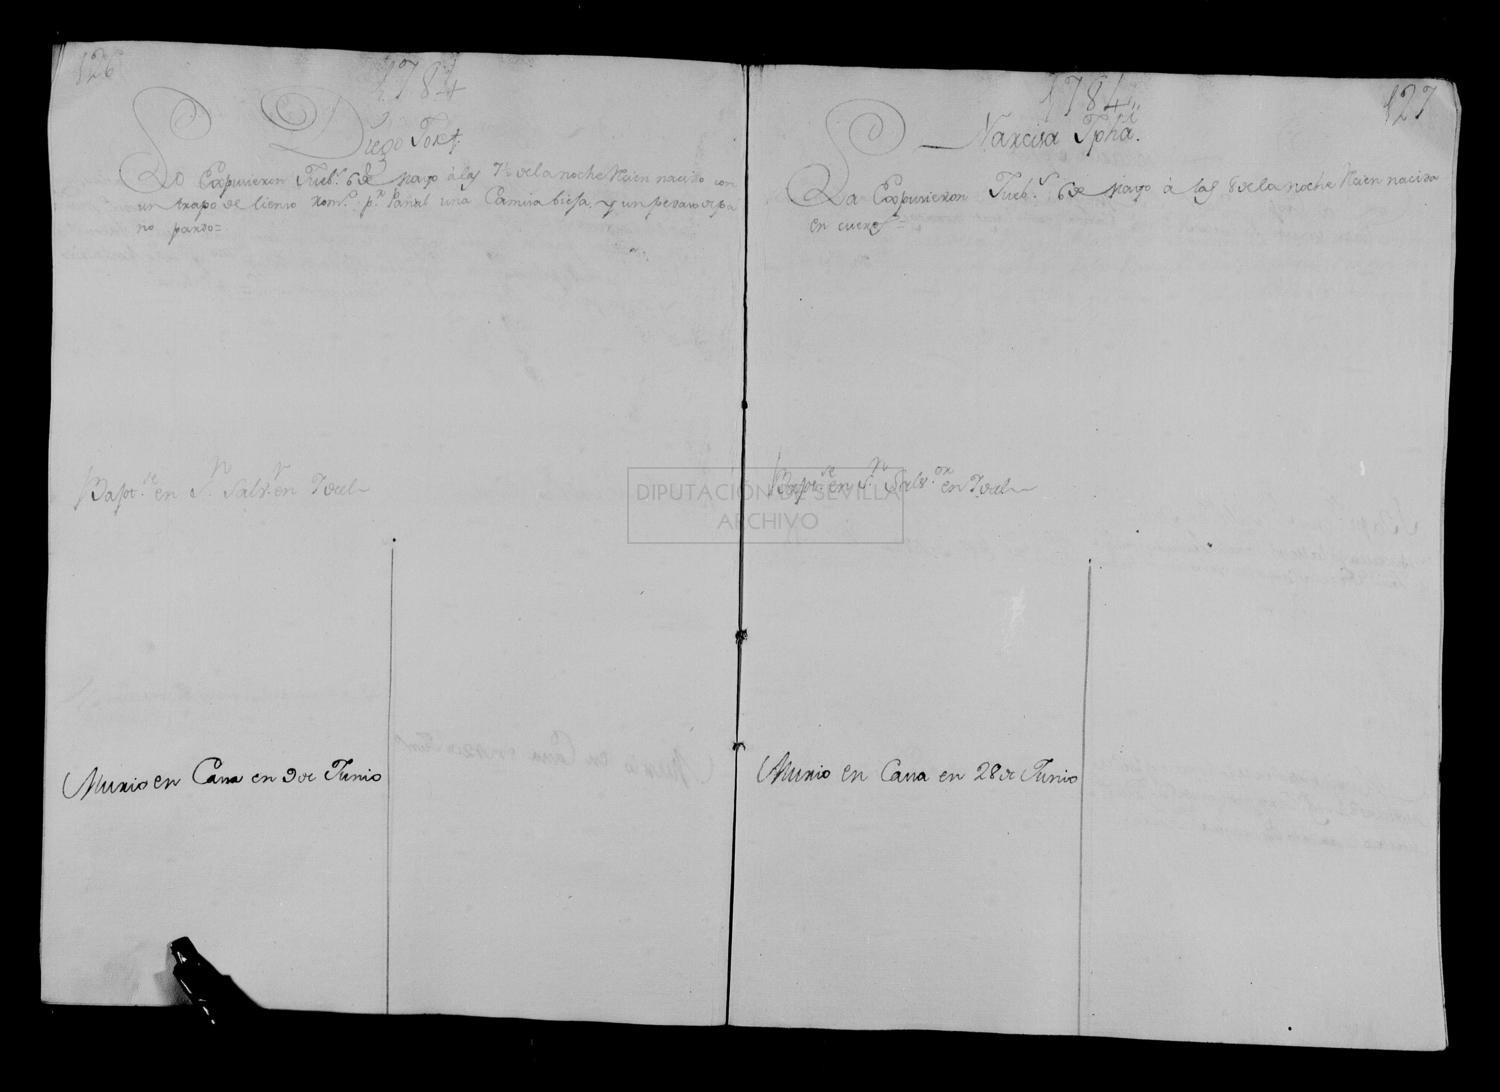 126
1784
Diego Jph.
Lo Expusieron Jueb.s 6 de Mayo à las 7½ de la noche Rêcien nacido con
un trapo de lienzo p.r Pañal una Camisa biefa, y un pedazo de pa
no pardo=
Bapt.se en S.n Salv.r en 7 de el
Murio en Cassa en 9 de Junio
1784
127
Narcisa Jpha.
La Expusieron Jueb.s 6 de Mayo à las 8 de la noche Rêcien nacida
en cueros=
Bapt.se en S.n Salv.or en 7 de el
Murio en Cassa en 28 de Junio
DIPUTACIÓN DE SEVILLA
ARCHIVO